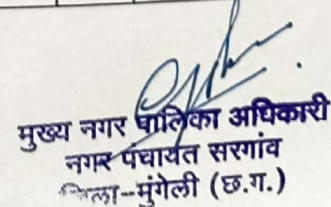 मुख्य नगर पालिका अधिकारी
नगर पंचायत सरगांव
जिला-मुंगेली (छ.ग.)